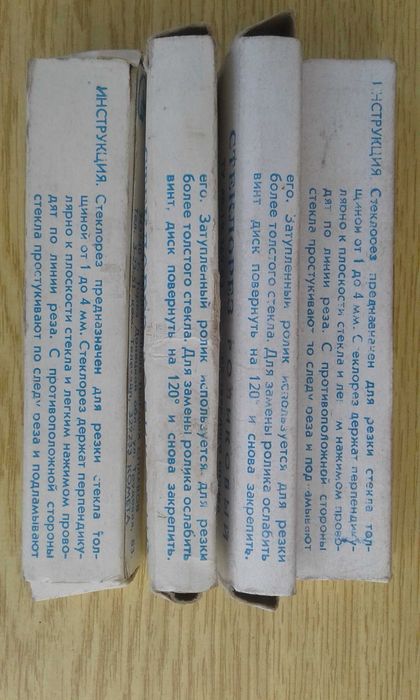 ИНСТРУКЦИЯ. Стеклорез предназначен для резки стекла тол-
щиной от 1 до 4 мм. Стеклорез держат перпендику-
лярно к плоскости стекла и легким нажимом прово-
дят по линии реза. С противоположной стороны
стекла простукивают по след реза и подламывают
его. Затупленный ролик используется для резки
более толстого стекла. Для замены ролика ослабить
винт, диск повернуть на 120° и снова закрепить.
его. Затупленный ролик используется для резки
более толстого стекла. Для замены ролика ослабить
винт диск повернуть на 120° и снова закрепить.
ИНСТРУКЦИЯ Стеклорез предназначен для резки стекла тол-
щиной от 1 до 4 мм. Стеклорез держат перпендику-
лярно к плоскости стекла и легким нажимом прово-
дят по линии реза. С противоположной стороны
стекла простукивают по след реза и подламывают